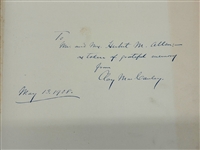 To
Mr and Mrs. Herbert M. Allen
a token of grateful memory
from
Clay MacCauley
May 15. 1918.